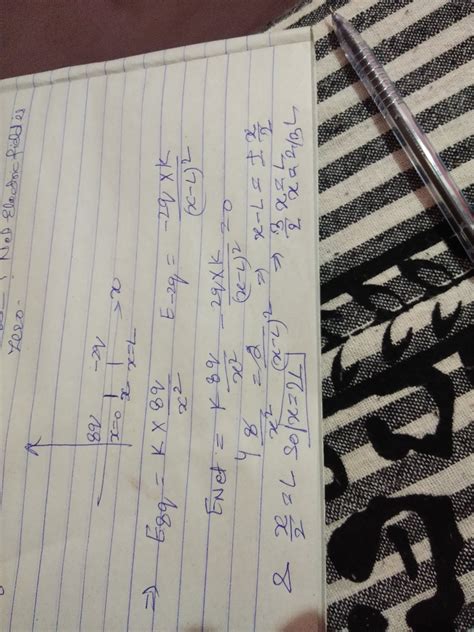 : Net Electric field is
zero.
8q -2q
x=0 x x=L → x
⇒ E8q = K × 8q / x² E-2q = -2q × K / (x-L)²
ENet = K 8q / x² - 2q × K / (x-L)² = 0
4 8 / x² = 2 / (x-L)² ⇒ x-L = ± x/2
& x/2 = L So, x = 2L ⇒ 3/2 x = L x = 2/3 L